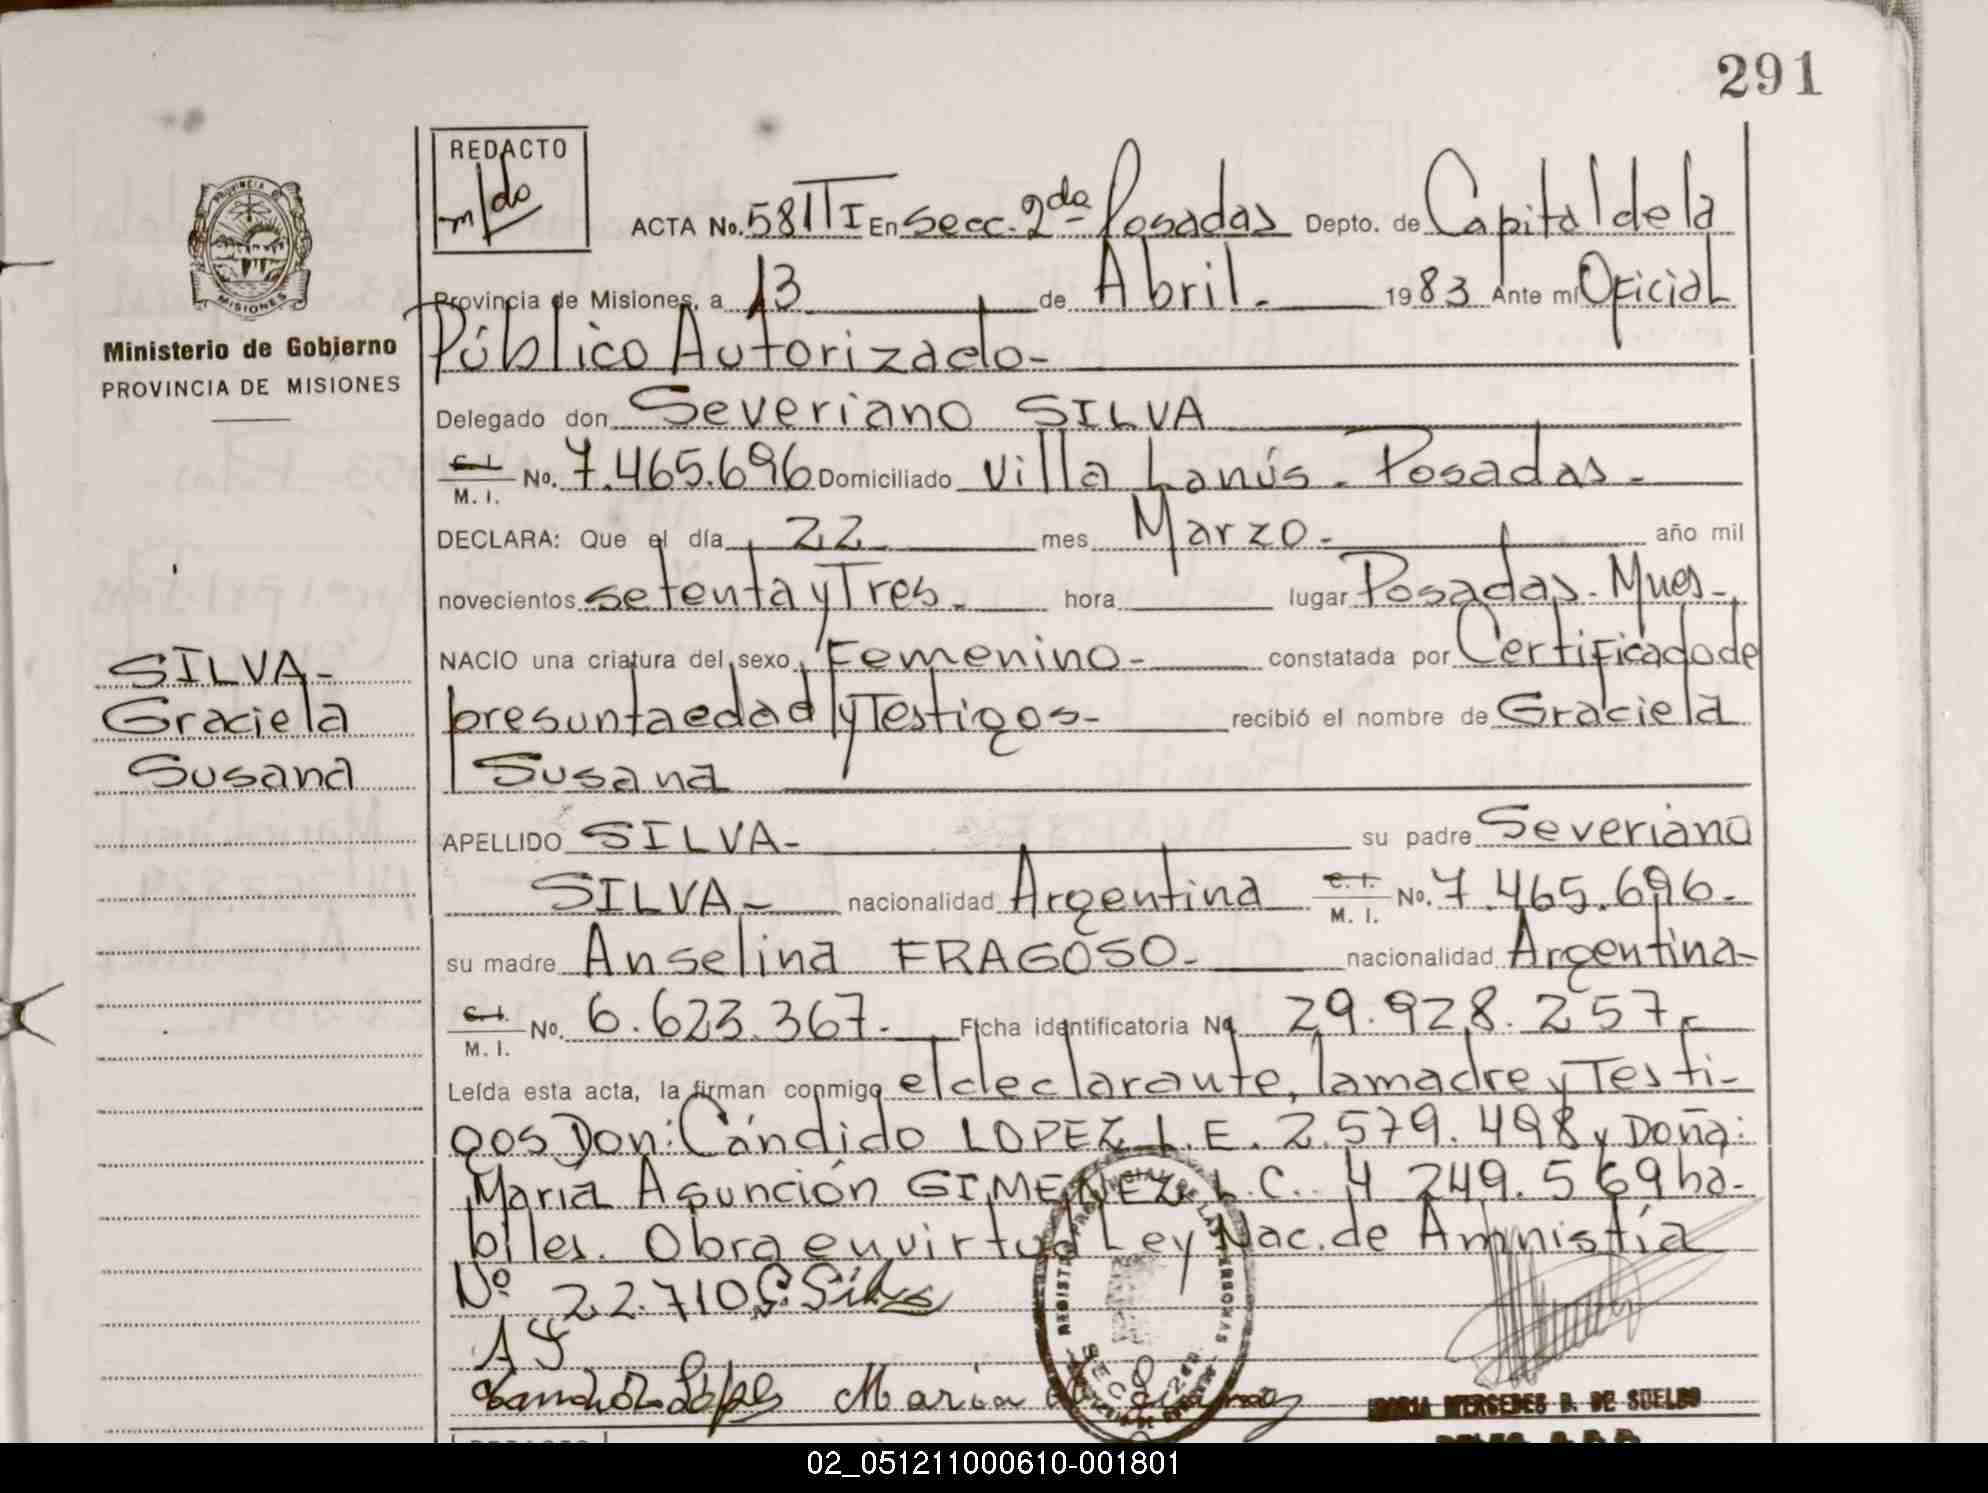 291
REDACTO
ACTA No. 581 TI En Secc. 2da Posadas Depto. de Capital de la
Provincia de Misiones, a 13 de Abril. 1983 Ante mí Oficial
Público Autorizado-
Ministerio de Gobierno
PROVINCIA DE MISIONES
Delegado don Severiano SILVA
C. I. / M. I. No. 7.465.696 Domiciliado Villa Lanús. Posadas.
DECLARA: Que el día 22 mes Marzo. año mil
novecientos setenta y Tres. hora lugar Posadas. Mnes.
NACIO una criatura del sexo Femenino- constatada por Certificado de
presunta edad y Testigos- recibió el nombre de Graciela
Susana
SILVA-
Graciela
Susana
APELLIDO SILVA- su padre Severiano
SILVA- nacionalidad Argentina C. I. / M. I. No. 7.465.696-
su madre Anselina FRAGOSO- nacionalidad Argentina-
C. I. / M. I. No. 6.623.367. Ficha identificatoria No 29.928.257-
Leída esta acta, la firman conmigo el declarante, la madre y Testi-
gos Don: Cándido LOPEZ L.E. 2.579.498 y Doña:
María Asunción GIMENEZ L.C. 4 249.569 há-
biles. Obra en virtud Ley Nac. de Amnistía
Nº 22.710 S. Silva
A F
López María
MARIA MERCEDES D. DE SUELDO
02_051211000610-001801